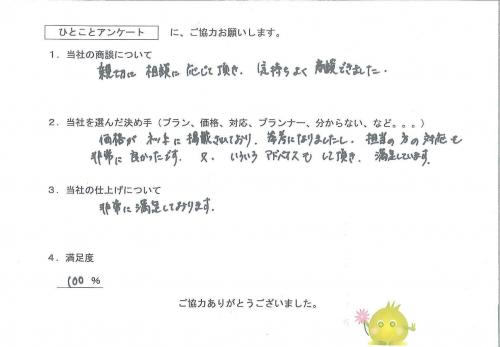 ひとことアンケート に、ご協力お願いします。
1．当社の商談について
親切に 相談に 応じて頂き、気持ちよく 商談できました。
2．当社を選んだ決め手（プラン、価格、対応、プランナー、分からない、など。。。）
価格が ネットに 掲載されており、参考になりましたし、担当の方の対応も
非常に 良かったです。又、いろいろ アドバイスも して頂き、満足しています。
3．当社の仕上げについて
非常に 満足しております。
4．満足度
100 %
ご協力ありがとうございました。